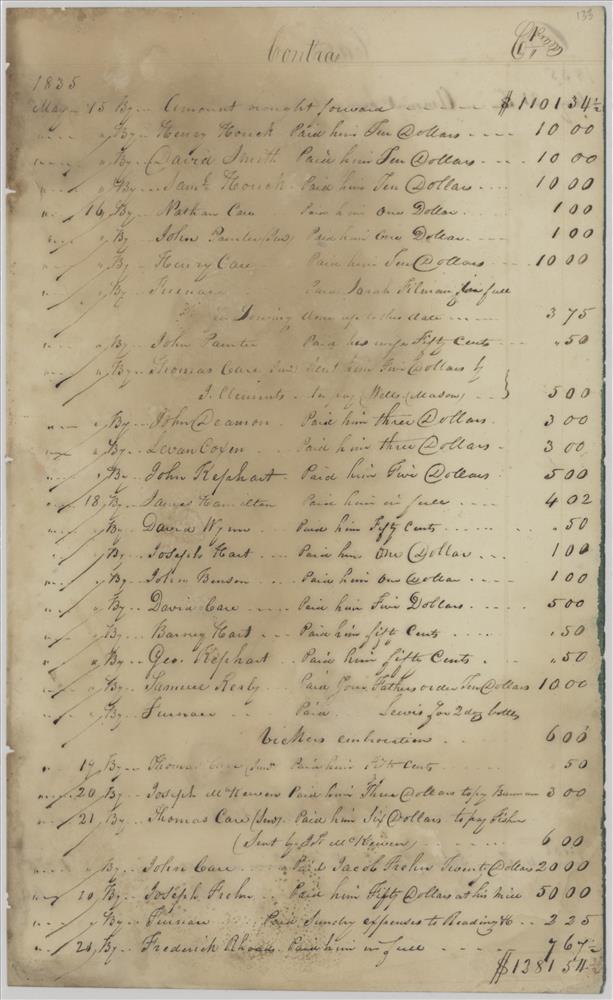 133
Contra
1835
May 15 By Amount brought forward $11013 4½
" By Henry Houck Paid him Ten Dollars 10 00
" By David Smith Paid him Ten Dollars 10 00
" By Saml Houck Paid him Ten Dollars 10 00
16 By Nathan Care Paid him One Dollar 1 00
" By John Painter (Jnr) Paid him One Dollar 1 00
" By Henry Care Paid him Ten Dollars 10 00
" By Furnace Paid Sarah Filman in full
for Sewing done up to this date 3 75
" By John Painter Paid his wife Fifty Cents " 50
" By Thomas Care Sent him Five Dollars by
J. Clements to pay Wells (Mason) 5 00
" By John Deamon Paid him three Dollars 3 00
" By Levan Coxen Paid him three Dollars 3 00
" By John Kephart Paid him Five Dollars 5 00
18 By James Hamilton Paid him in full 4 02
" By David Wynn Paid him Fifty Cents " 50
" By Joseph Hart Paid him One Dollar 1 00
" By John Benson Paid him One Dollar 1 00
" By David Care Paid him Five Dollars 5 00
" By Barney Hart Paid him fifty Cents " 50
" By Geo. Kephart Paid him fifty Cents " 50
" By Samuel Kerby Paid Your Fathers order Ten Dollars 10 00
" By Furnace Paid Lewis for 2 doz bottles
Vickers embrocation 6 00
19 By Thomas Care (Jnr) Paid him Fifty Cents 50
20 By Joseph McKewen Paid him Three Dollars to pay 3 00
21 By Thomas Care (Snr) Paid him Six Dollars to pay Fisher
(Sent by Js McKewen) 6 00
" By John Care Paid Jacob Frehn Twenty Dollars 20 00
By Joseph Frehn Paid him Fifty Dollars at his Mill 50 00
" By Furnace Paid Sundry expenses to Reading &c 2 25
By Frederick Rhoads Paid him in full 7 67½
$1381 54½